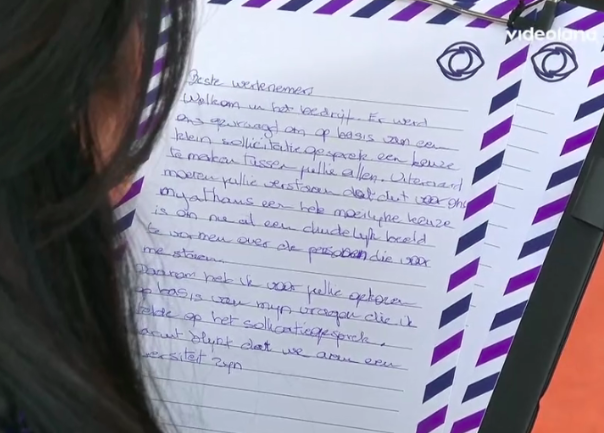 videoland
Beste werknemers
Welkom in het bedrijf. Er werd
ons gevraagd om op basis van een
klein sollicitatiegesprek een keuze
te maken tussen jullie allen. Uiteraard
moeten jullie verstaan dat dit voor ons
een heel moeilijke keuze
is om nu al een duidelijk beeld
te vormen over de personen die voor
me staan.
Daarom heb ik voor jullie gekozen
op basis van mijn vragen die ik
stelde op het sollicitatiegesprek.
blijkt dat we aan een
zijn